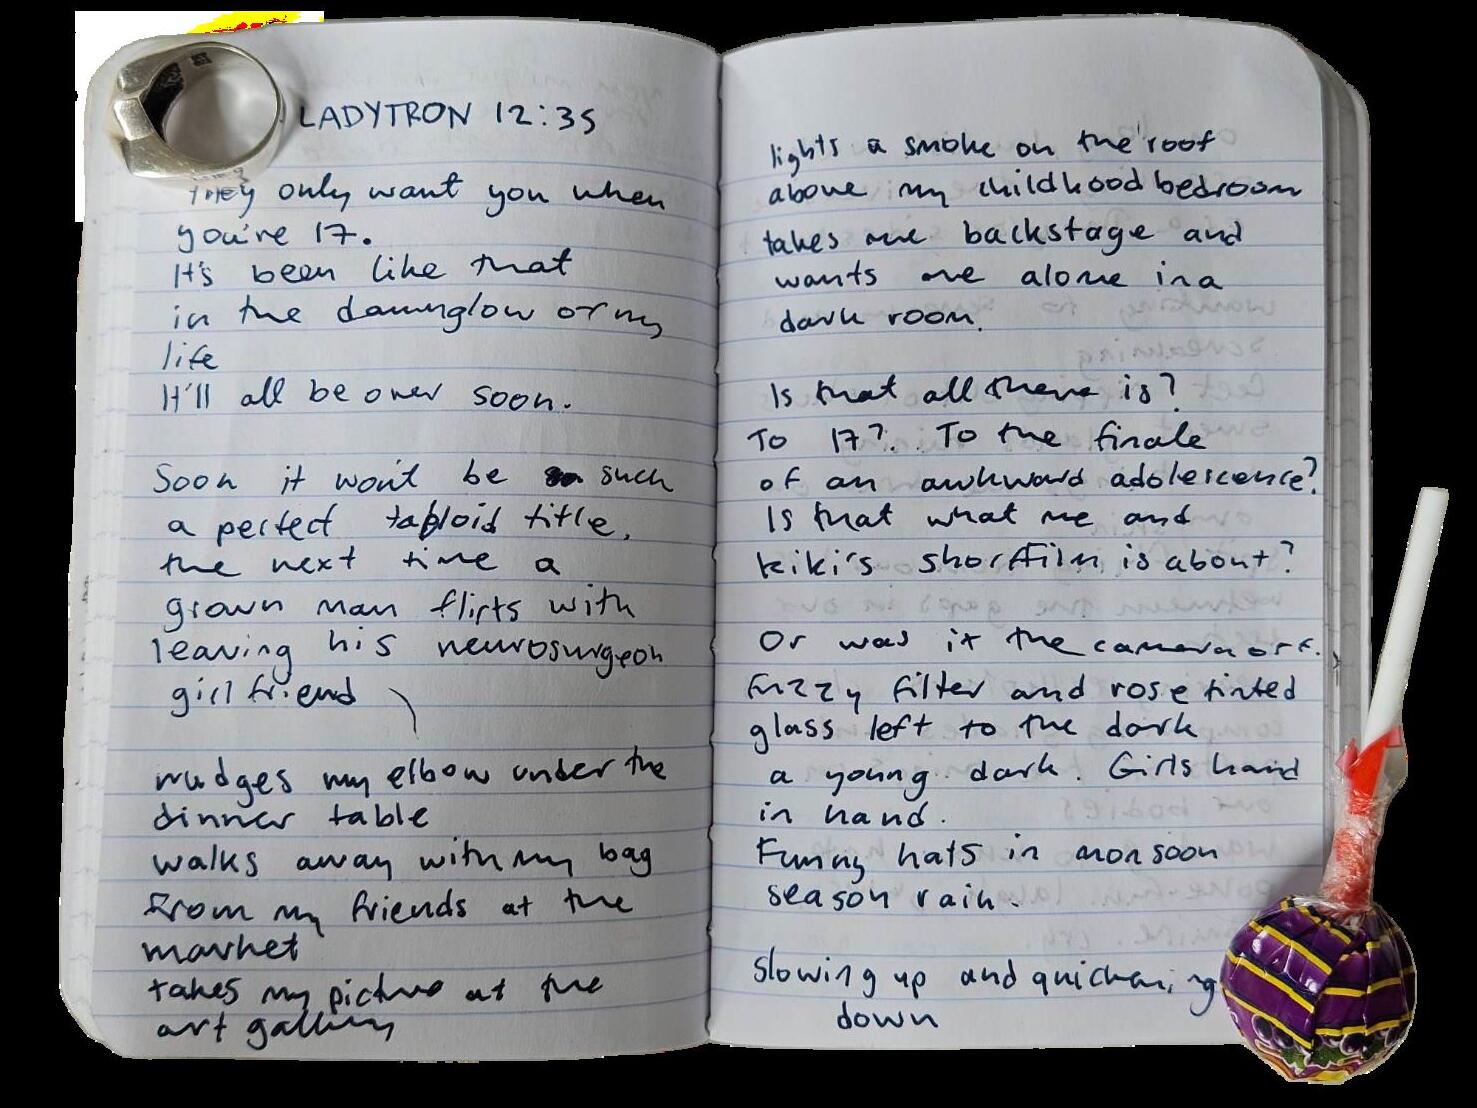 LADYTRON 12:35
They only want you when
you're 17.
It's been like that
in the dawnglow of my
life
It'll all be over soon.
Soon it won't be such
a perfect tabloid title.
the next time a
grown man flirts with
leaving his neurosurgeon
girlfriend
nudges my elbow under the
dinner table
walks away with my bag
from my friends at the
market
takes my picture at the
art gallery
lights a smoke on the roof
above my childhood bedroom
takes me backstage and
wants me alone in a
dark room.
Is that all there is?
To 17? To the finale
of an awkward adolescence?
Is that what me and
kiki's shortfilm is about?
Or was it the camera
Fuzzy filter and rose tinted
glass left to the dark
a young dark. Girls hand
in hand.
Funny hats in monsoon
season rain.
Slowing up and quickening
down